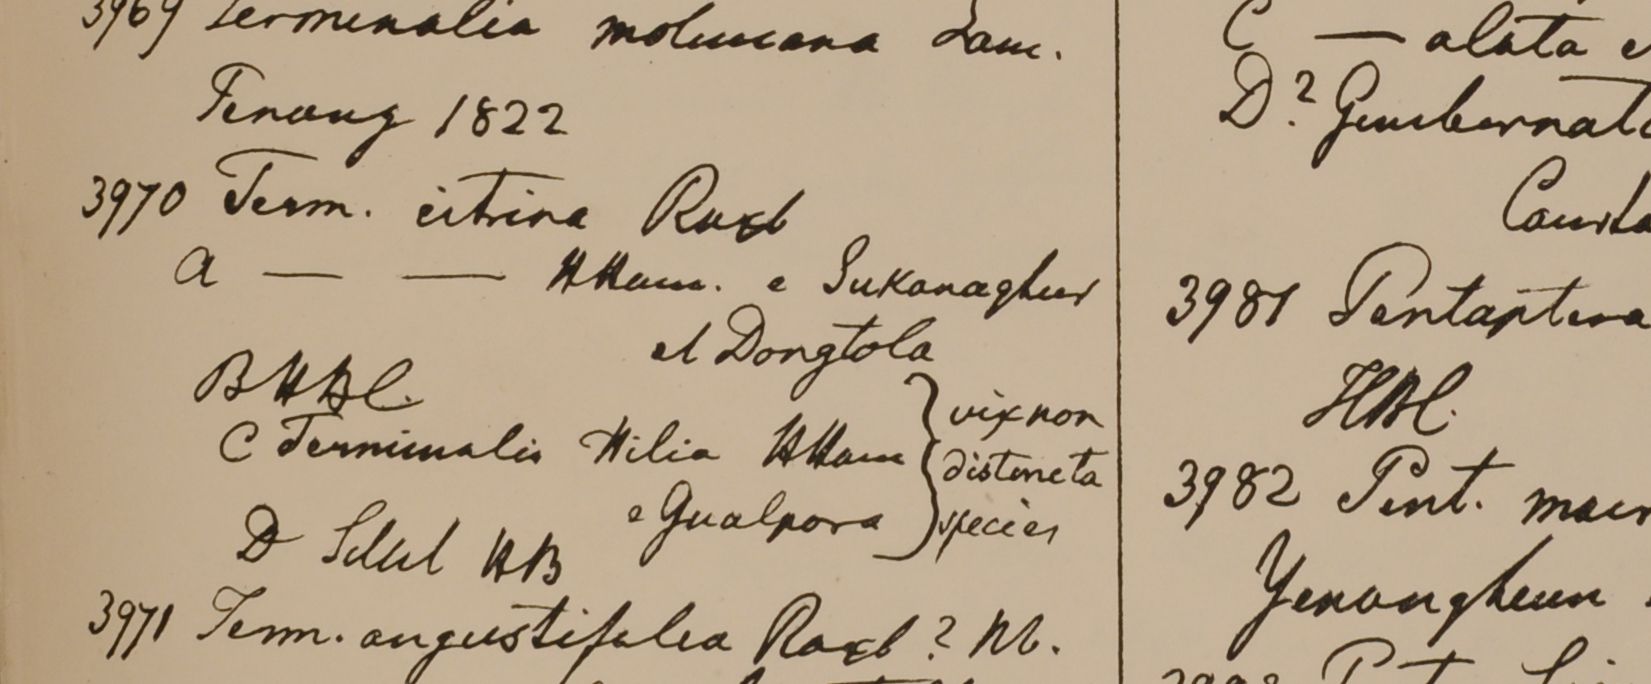 3969 Terminalia moluccana Lam.
Penang 1822
3970 Term. citrina Roxb
a — — HHam. e Sukanaghur
et Dongtola
B HBC.
C Terminalia Hilia HHam
e Gualpora
} vix non
distincta
species
D Silul HB
3971 Term. angustifolia Roxb? Hb.
C — alata e
D? Gumbernat
3981 Pentaptera
HBC.
3982 Pent. macr
Yenangheun